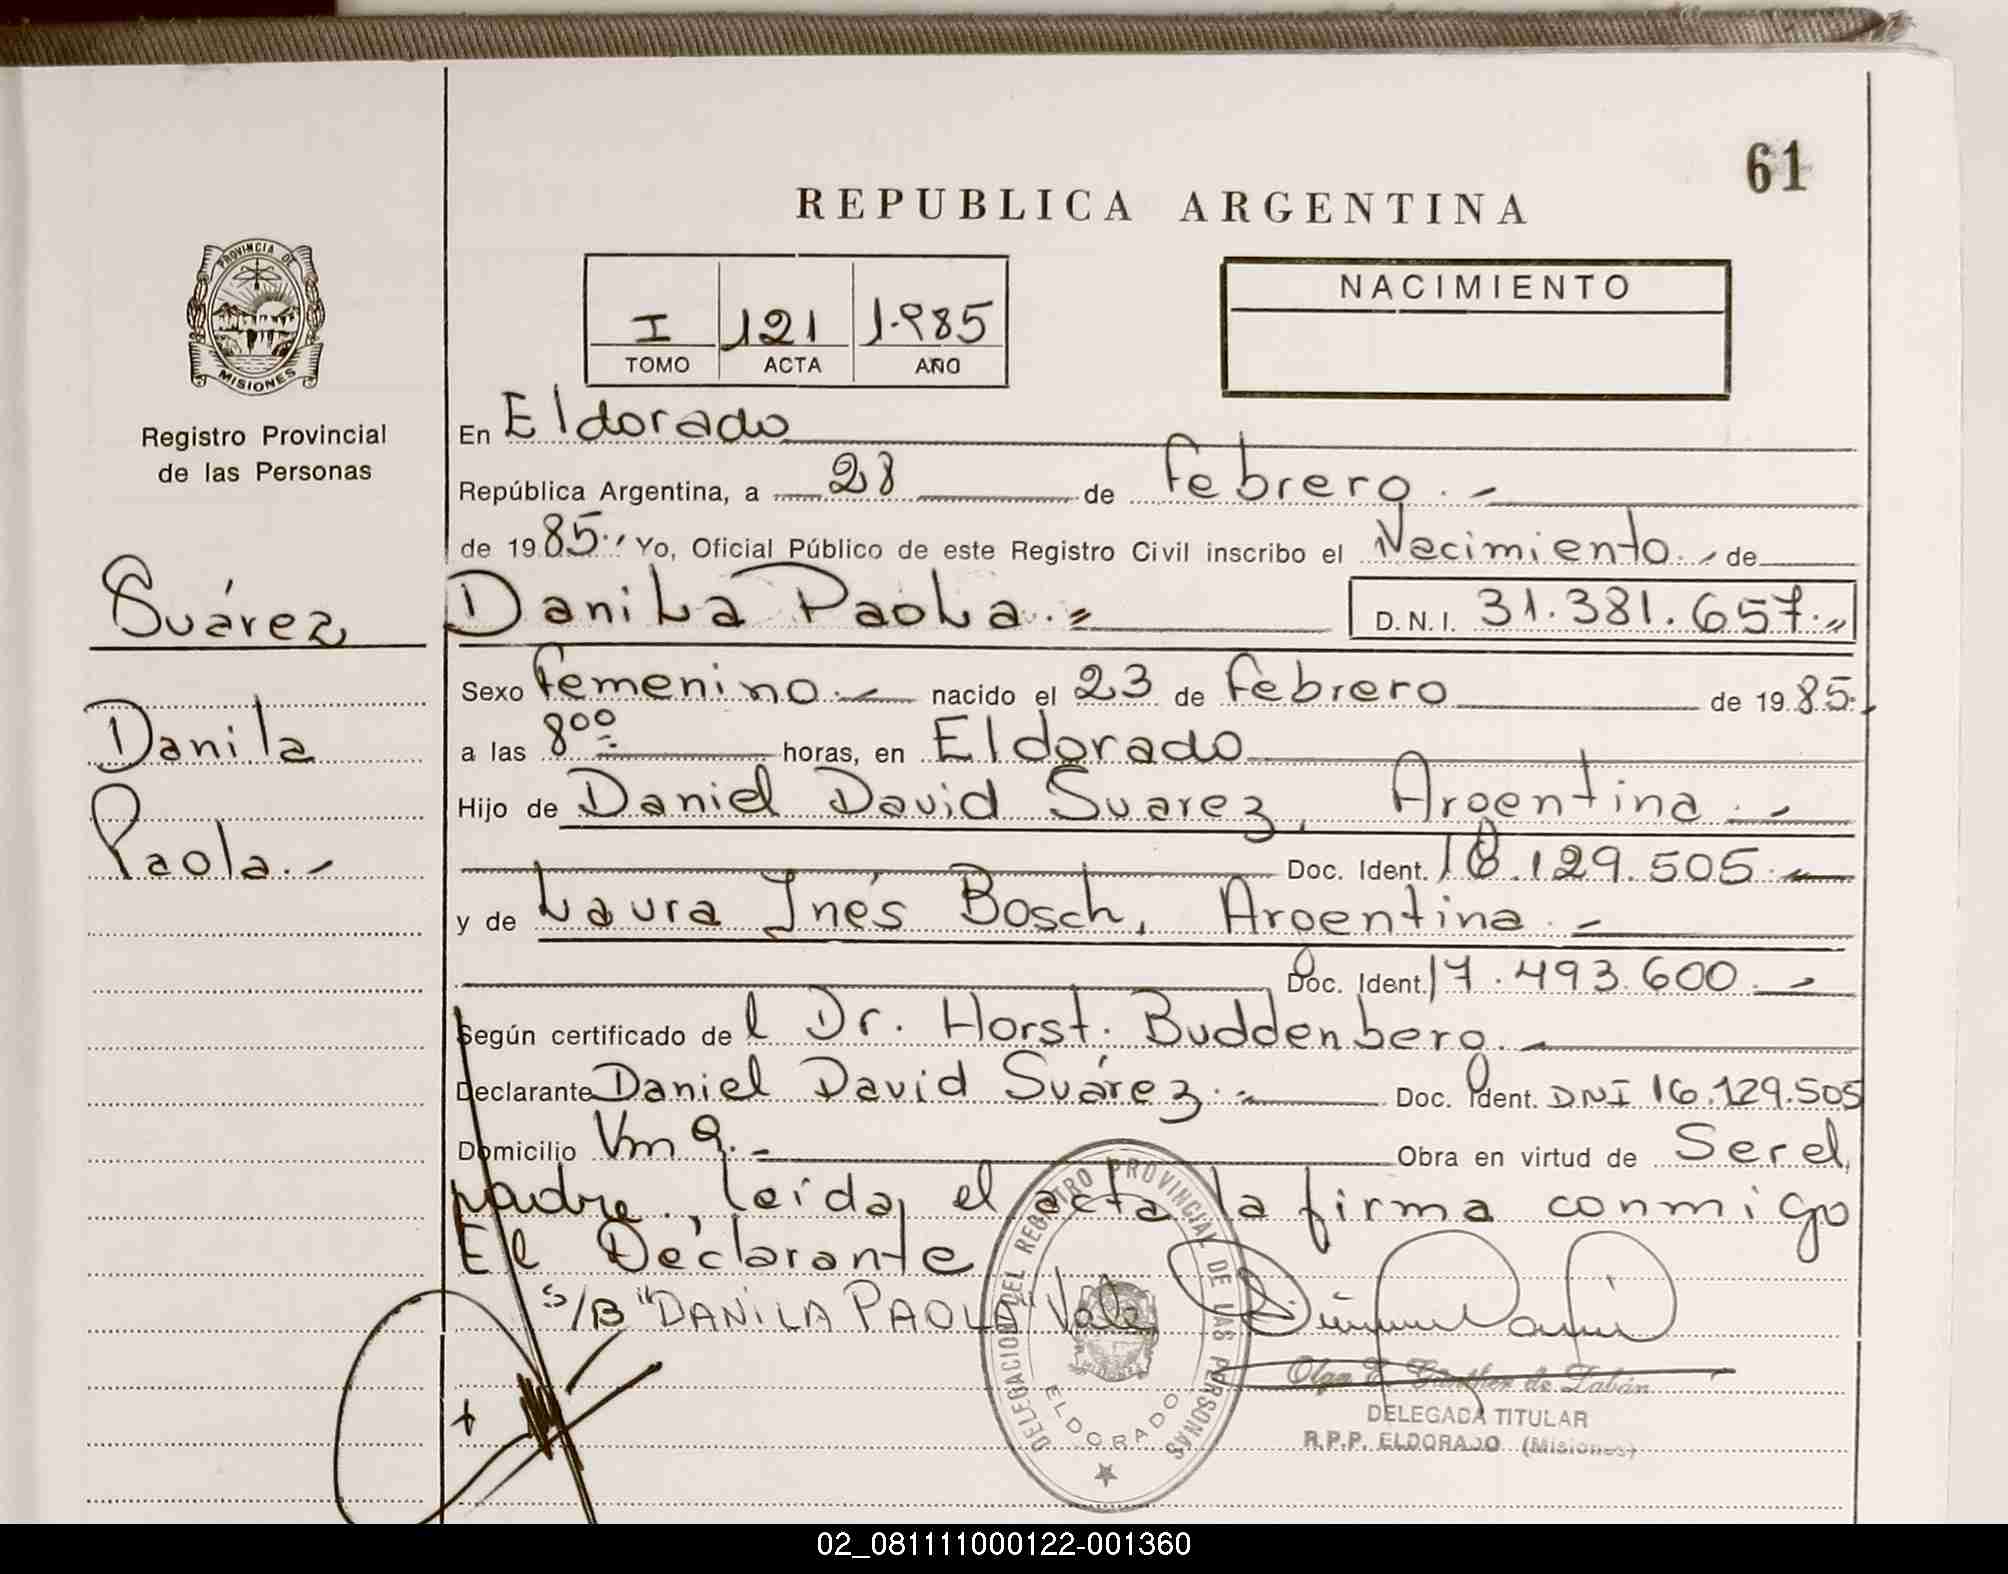 61
REPUBLICA ARGENTINA
PROVINCIA DE
MISIONES
Registro Provincial
de las Personas
I 121 1.985
TOMO ACTA AÑO
NACIMIENTO
En Eldorado
República Argentina, a 28 de febrero.-
de 1985.- Yo, Oficial Público de este Registro Civil inscribo el Nacimiento.- de
Suárez
Danila Paola.= D.N.I. 31.381.657.-
Sexo femenino.- nacido el 23 de febrero de 1985.-
Danila
a las 8⁰⁰.- horas, en Eldorado
Hijo de Daniel David Suarez, Argentina.-
Paola.-
Doc. Ident. 16.129.505.-
y de Laura Inés Bosch, Argentina.-
Doc. Ident. 17.493.600.-
Según certificado del Dr. Horst. Buddenberg.-
Declarante Daniel David Suárez.- Doc. Ident. DNI 16.129.505
Domicilio Km 9.- Obra en virtud de Ser el
padre. leída, el acta la firma conmigo
El Declarante
S/B "DANILA PAOLA" Vale
DELEGACION DEL REGISTRO PROVINCIAL DE LAS PERSONAS
ELDORADO
MISIONES
Olga E. de Zabán
DELEGADA TITULAR
R.P.P. ELDORADO (Misiones)
02_081111000122-001360